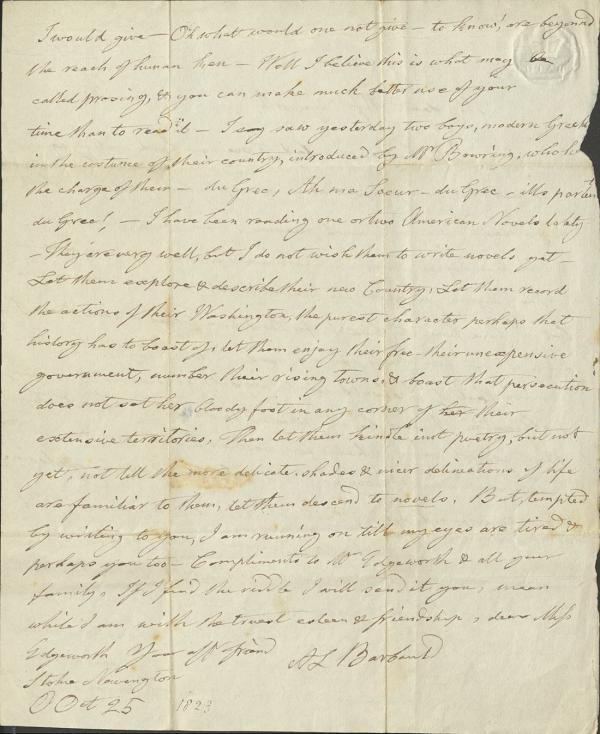 I would give — Oh what would one not give — to know! are beyond
the reach of human ken — Well I believe this is what may be
called prosing, & you can make much better use of your
time than to read it — I saw yesterday two boys, modern Greeks
in the costume of their country, introduced by Mr Bowring, who has
the charge of their — du Grec, Ah ma Soeur — du Grec — ils parlent
du Grec! — I have been reading one or two American Novels lately
— They are very well, but I do not wish them to write novels yet —
Let them explore & describe their new Country; Let them record
the actions of their Washington, the purest character perhaps that
history has to boast of, let them enjoy their free their unexpensive
government, number their rising towns, & boast that persecution
does not set her bloody foot in any corner of her their
extensive territories. Then let them kindle into poetry, but not
yet, not till the more delicate shades & nicer delineations of life
are familiar to them, let them descend to novels. But, tempted
by writing to you, I am running on till my eyes are tired &
perhaps you too — Compliments to Mr Edgeworth & all your
family. If I find the riddle I will send it you, mean
while I am with the truest esteem & friendship, dear Miss
Edgeworth Your afft friend
A L Barbauld
Stoke Newington
Oct 25 1823